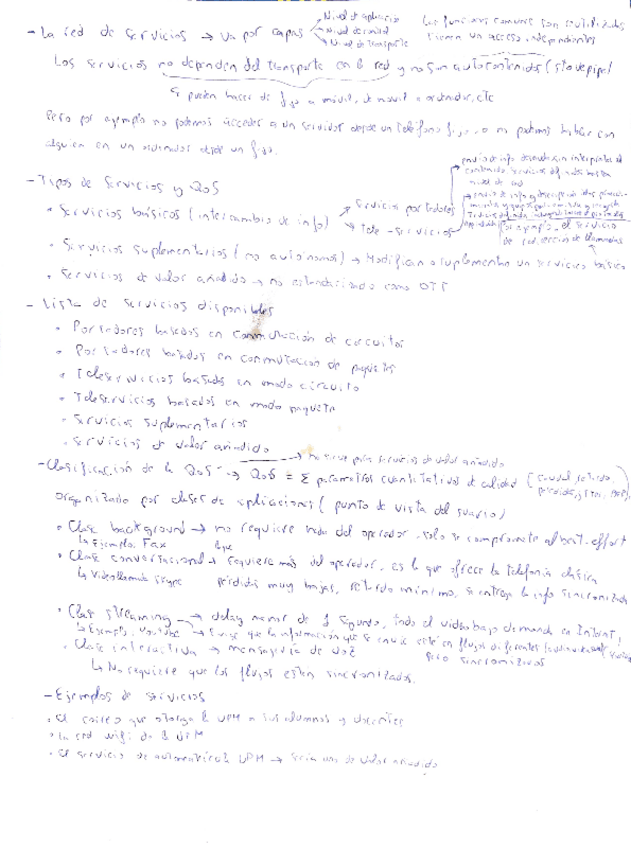 - La red de servicios → va por capas
Nivel de aplicación
Nivel de red
Nivel de transporte
Las funciones comunes son reutilizadas
tienen un acceso independientes
Los servicios no dependen del transporte en la red y no son autocontenidos (stovepipe)
pueden hacer de fijo a móvil, de móvil a ordenador, etc
Pero por ejemplo no podemos acceder a un servidor desde un teléfono fijo o no podemos hablar con
alguien en un ordenador desde un fijo.
- Tipos de Servicios y QoS
• Servicios básicos (intercambio de info)
Servicios portadores
Tele-servicios
envío de info sin interpretar el
contenido, servicios
nivel de red
por ejemplo, el servicio
de redirección de llamadas
• Servicios suplementarios (no autónomos) → Modifican o suplementan un servicio básico
• Servicios de valor añadido → no estandarizado como OTT
- Lista de servicios disponibles
• Portadores basados en conmutación de circuitos
• Portadores basados en conmutación de paquetes
• Teleservicios basados en modo circuito
• Teleservicios basados en modo paquete
• Servicios suplementarios
• Servicios de valor añadido
→ no sirve para servicios de valor añadido
- Clasificación de la QoS → QoS = Σ parámetros cuantitativos de calidad (caudal, retardo,
pérdidas
organizado por clases de aplicaciones (punto de vista del usuario)
• Clase background → no requiere nada del operador, solo se compromete al best-effort
↳ Ejemplo: Fax
• Clase conversacional → requiere más del operador, es lo que ofrece la telefonía clásica
↳ Videollamada Skype
pérdidas muy bajas, retardo mínimo, se entrega la info sincronizada
• Clase streaming → delay menor de 1 segundo, todo el video bajo demanda en Internet
↳ Ejemplo: Youtube → Exige que la información que se envíe esté en flujos diferentes
pero sincronizados
• Clase interactiva → mensajería de voz
↳ No requiere que los flujos estén sincronizados.
- Ejemplos de servicios
• El correo que otorga la UPM a sus alumnos y docentes
• La red wifi de la UPM
• El servicio de UPM → sería uno de valor añadido